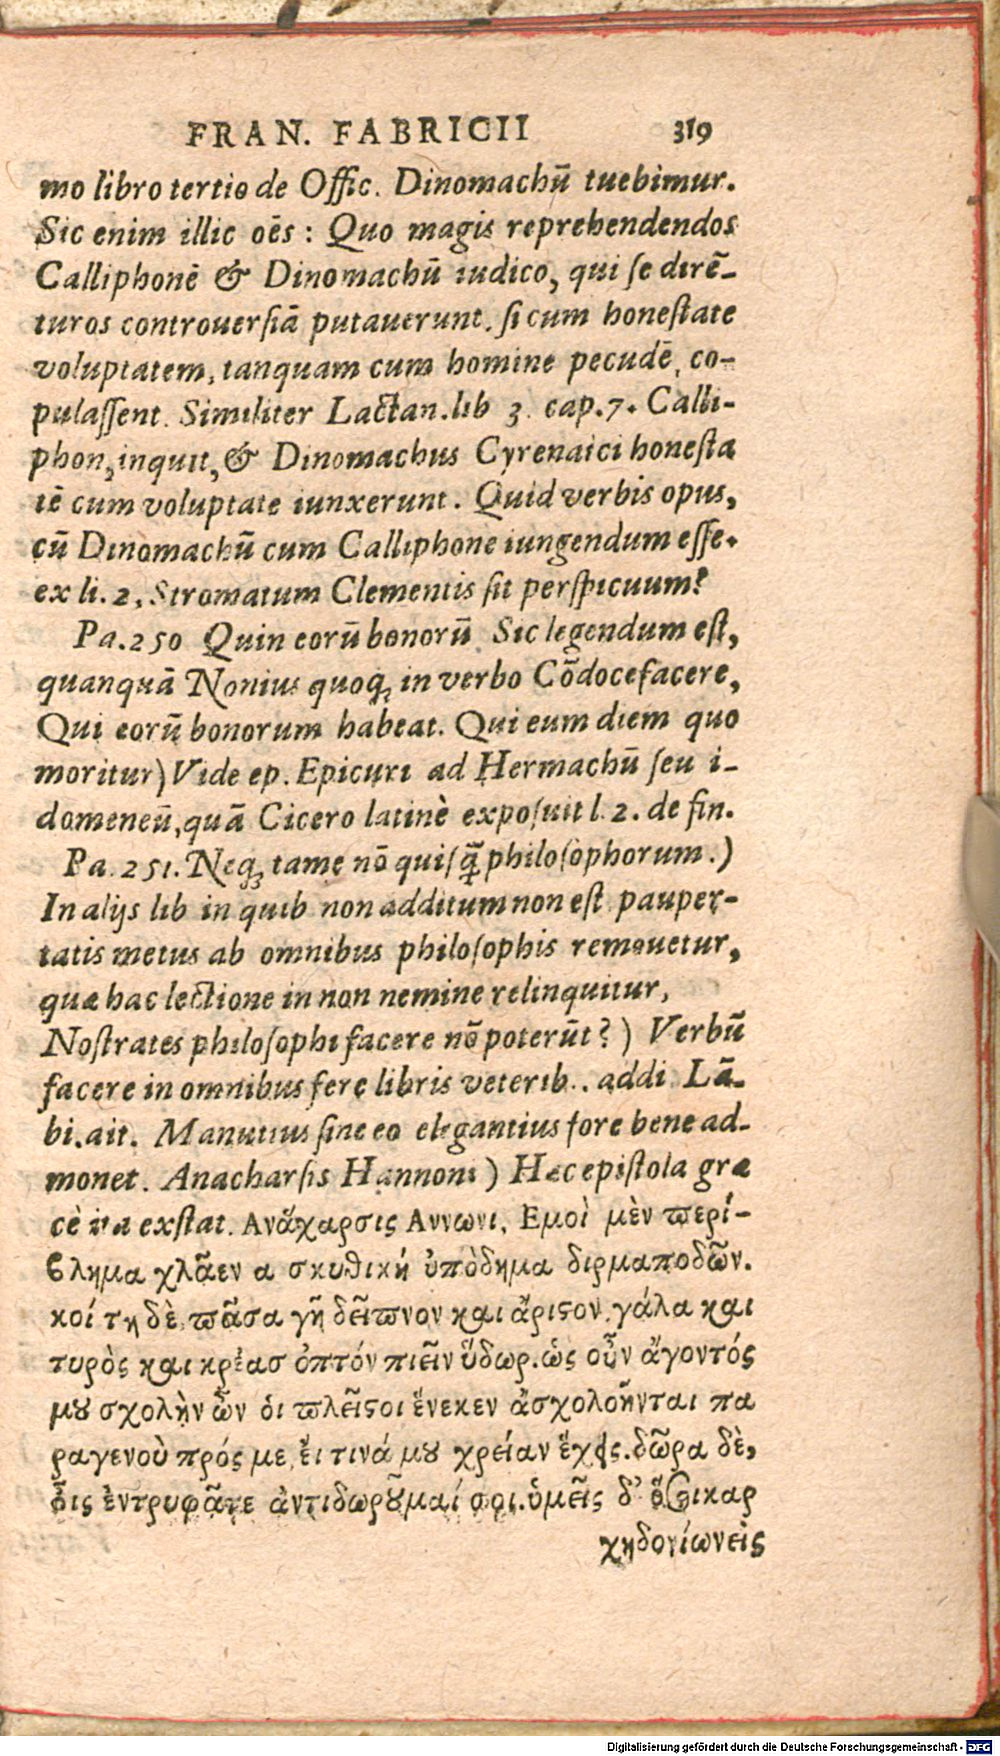 FRAN. FABRICII 319
mo libro tertio de Offic. Dinomachū tuebimur.
Sic enim illic oēs : Quo magis reprehendendos
Calliphonē & Dinomachū iudico, qui se dirē-
turos controuersiā putauerunt. si cum honestate
voluptatem, tanquam cum homine pecudē, co-
pulassent. Similiter Lactan. lib 3. cap. 7. Calli-
phon, inquit, & Dinomachus Cyrenaici honesta
tē cum voluptate iunxerunt. Quid verbis opus,
cū Dinomachū cum Calliphone iungendum esse.
ex li. 2, Stromatum Clementis sit perspicuum?
Pa. 250 Quin eorū bonorū Sic legendum est,
quanquā Nonius quoq; in verbo Cōdocefacere,
Qui eorū bonorum habeat. Qui eum diem quo
moritur) Vide ep. Epicuri ad Hermachū seu i-
domeneū, quā Cicero latinè exposuit l. 2. de fin.
Pa. 251. Neq; tame nō quisq̄ philosophorum.)
In alijs lib in quib non additum non est pauper-
tatis metus ab omnibus philosophis remouetur,
quæ hac lectione in non nemine relinquitur,
Nostrates philosophi facere nō poterūt? ) Verbū
facere in omnibus fere libris veterib.. addi Lā-
bi. ait. Manutius sine eo elegantius fore bene ad-
monet. Anacharsis Hannoni ) Hæc epistola græ
cè ita exstat. Ανάχαρσις Αννωνι. Εμοὶ μὲν ϖερί-
ϐλημα χλᾶεν α σκυθικὴ ὑπόδημα διρμαποδῶν.
κοί τη δὲ ϖᾶσα γῆ δεῖϖνον και ἄριϛον. γάλα και
τυρὸς και κρέασ ὀπτόν πιεῖν ὕδωρ. ὡς οὖν ἄγοντός
μȣ σχολὴν ὧν ὁι ϖλεῖϛοι ἕνεκεν ἀσχολοῦνται πα
ραγενοὺ πρός με, ἔι τινά μȣ χρείαν ἔχεις. δῶρα δὲ,
ὃις ἐντρυφᾶτε ἀντιδωρȣμαί σοι. ὑμεῖς δ' ικαρ
χηδονίωνεἰς
Digitalisierung gefördert durch die Deutsche Forschungsgemeinschaft - DFG